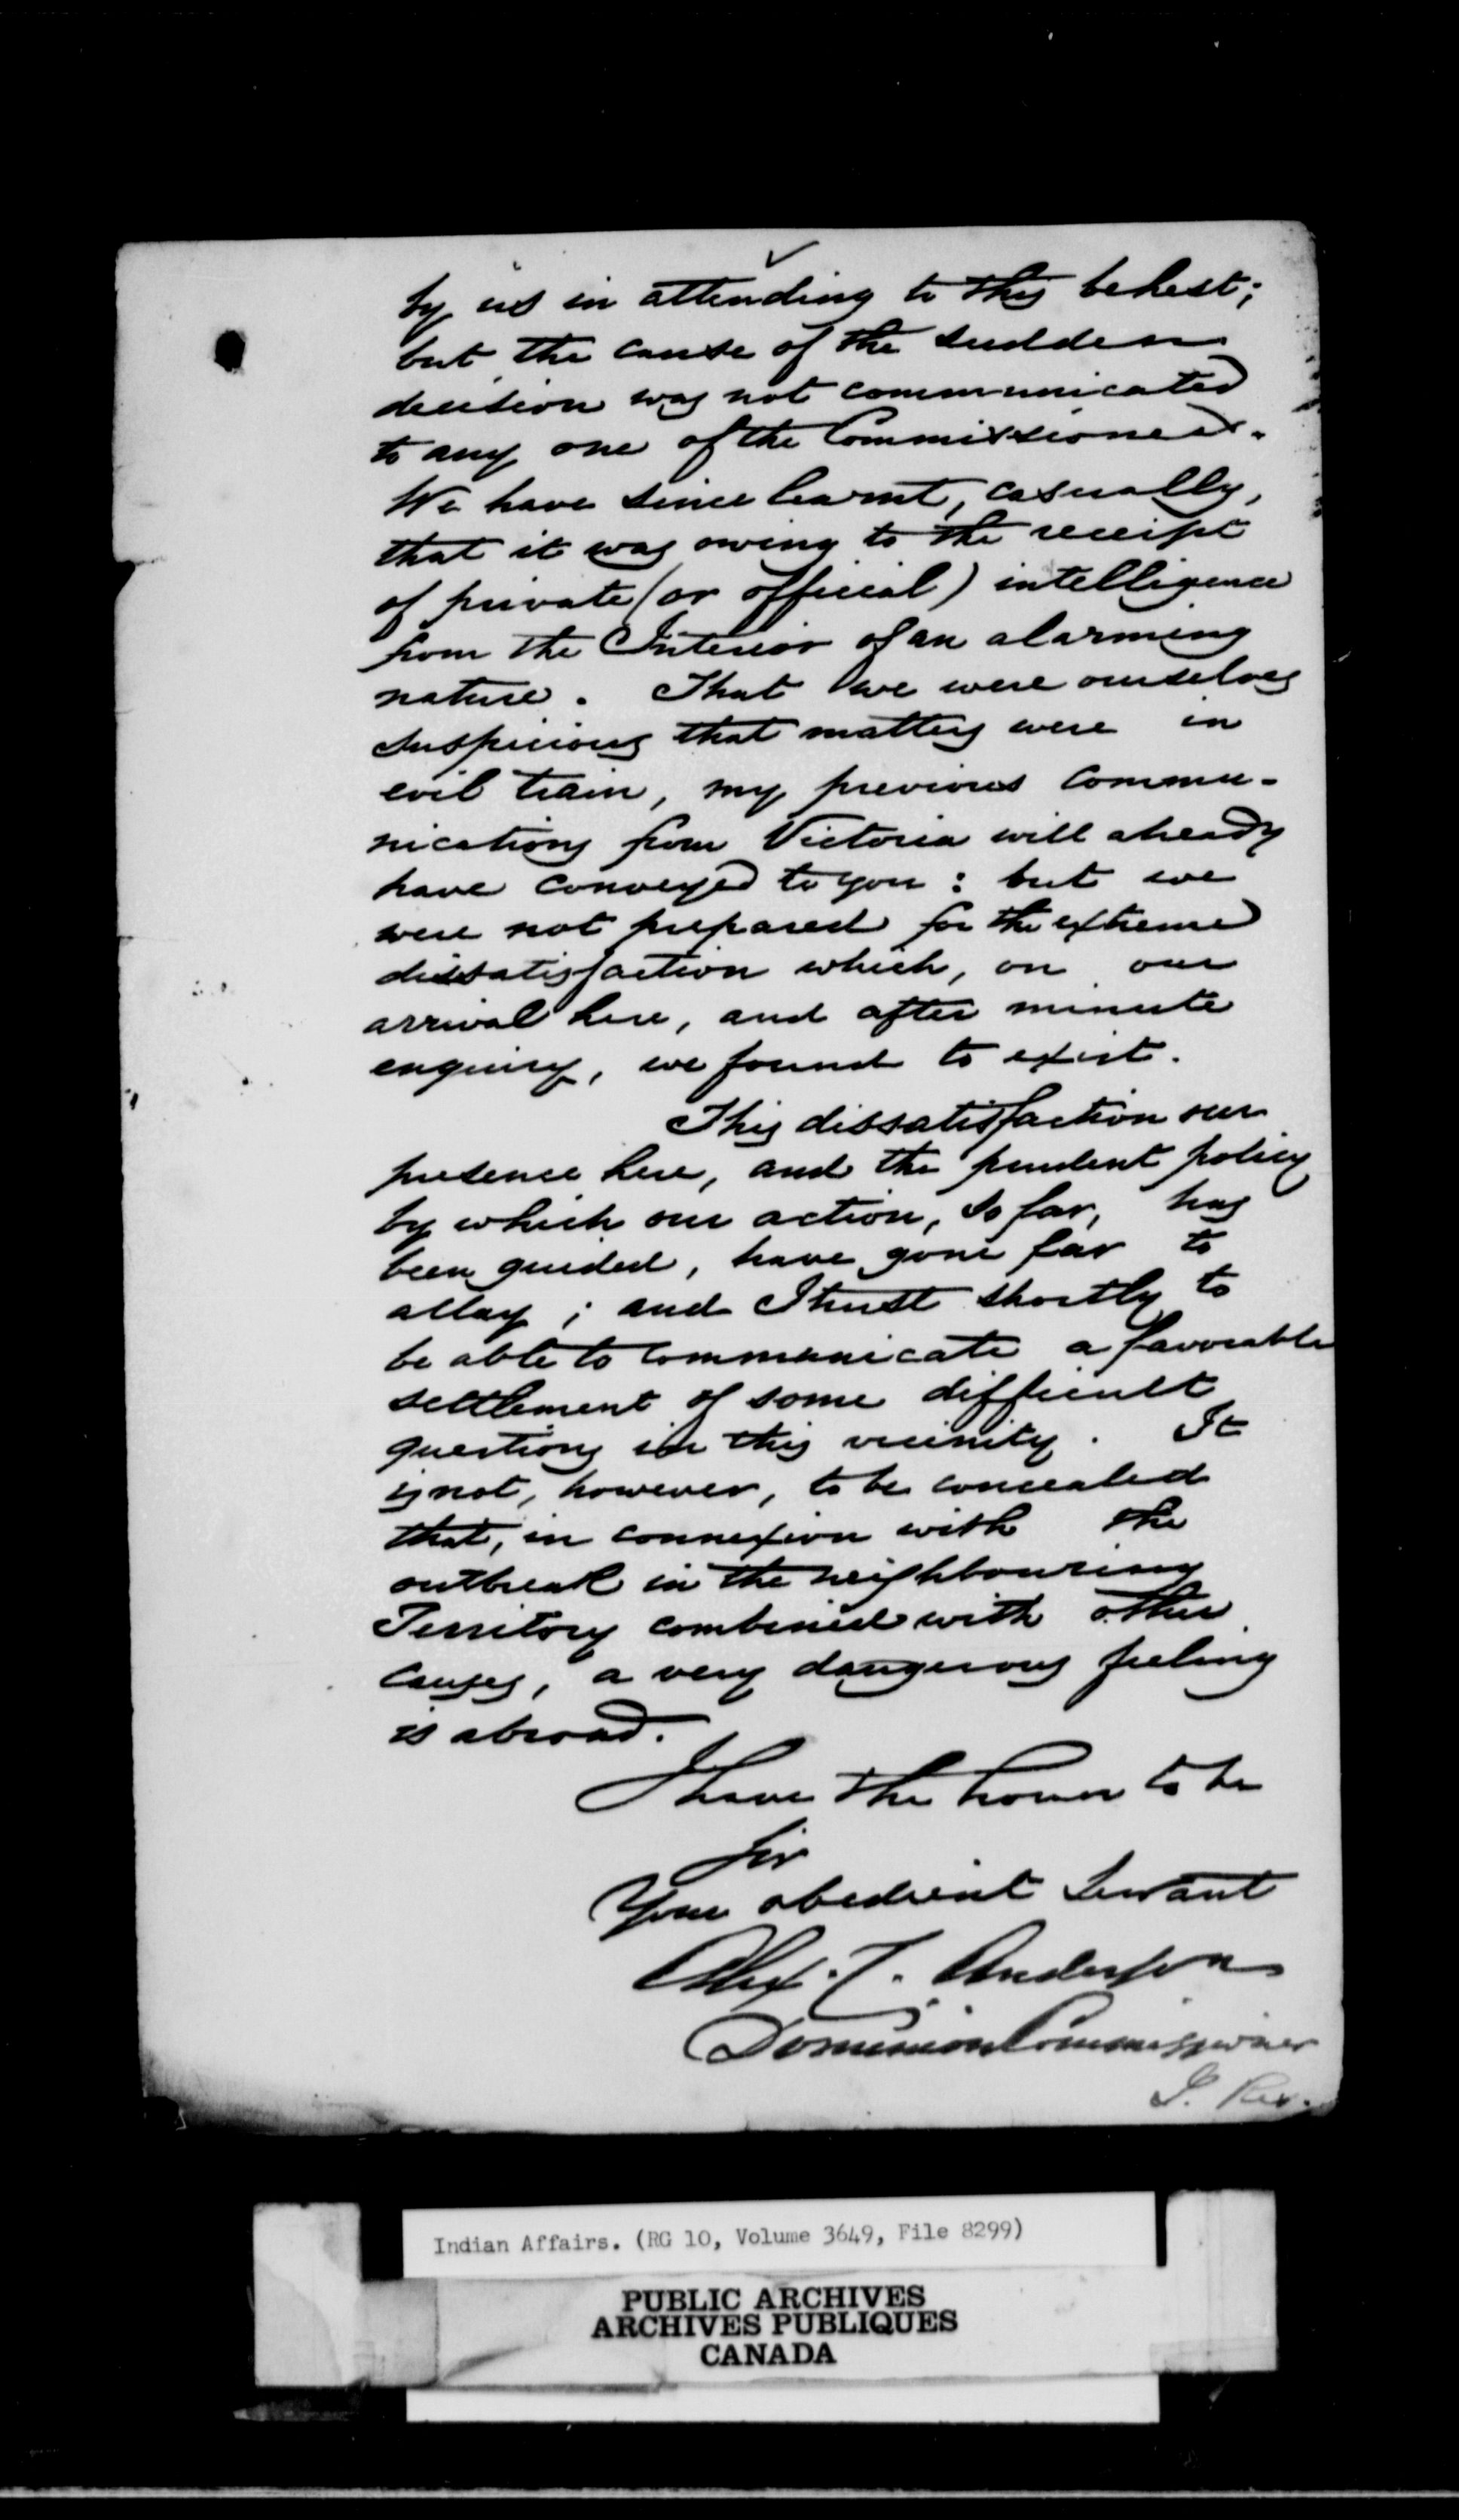 by us in attending to this behest;
but the cause of the sudden
decision was not communicated
to any one of the Commissioners.
We have since learnt, casually,
that it was owing to the receipt
of private (or official) intelligence
from the Interior of an alarming
nature. That we were ourselves
suspicious that matters were in
evil train, my previous commu-
nications from Victoria will already
have conveyed to you: but we
were not prepared for the extreme
dissatisfaction which, on our
arrival here, and after minute
enquiry, we found to exist.
This dissatisfaction our
presence here, and the prudent policy
by which our action, so far, has
been guided, have gone far to
allay; and I trust shortly to
be able to communicate a favorable
settlement of some difficult
questions in this vicinity. It
is not, however, to be concealed
that, in connexion with the
outbreak in the neighbouring
Territory combined with other
causes, a very dangerous feeling
is abroad.
I have the honor to be
Sir
Your obedient Servant
Alex. C. Anderson
Dominion Commissioner
I. Res.
Indian Affairs. (RG 10, Volume 3649, File 8299)
PUBLIC ARCHIVES
ARCHIVES PUBLIQUES
CANADA